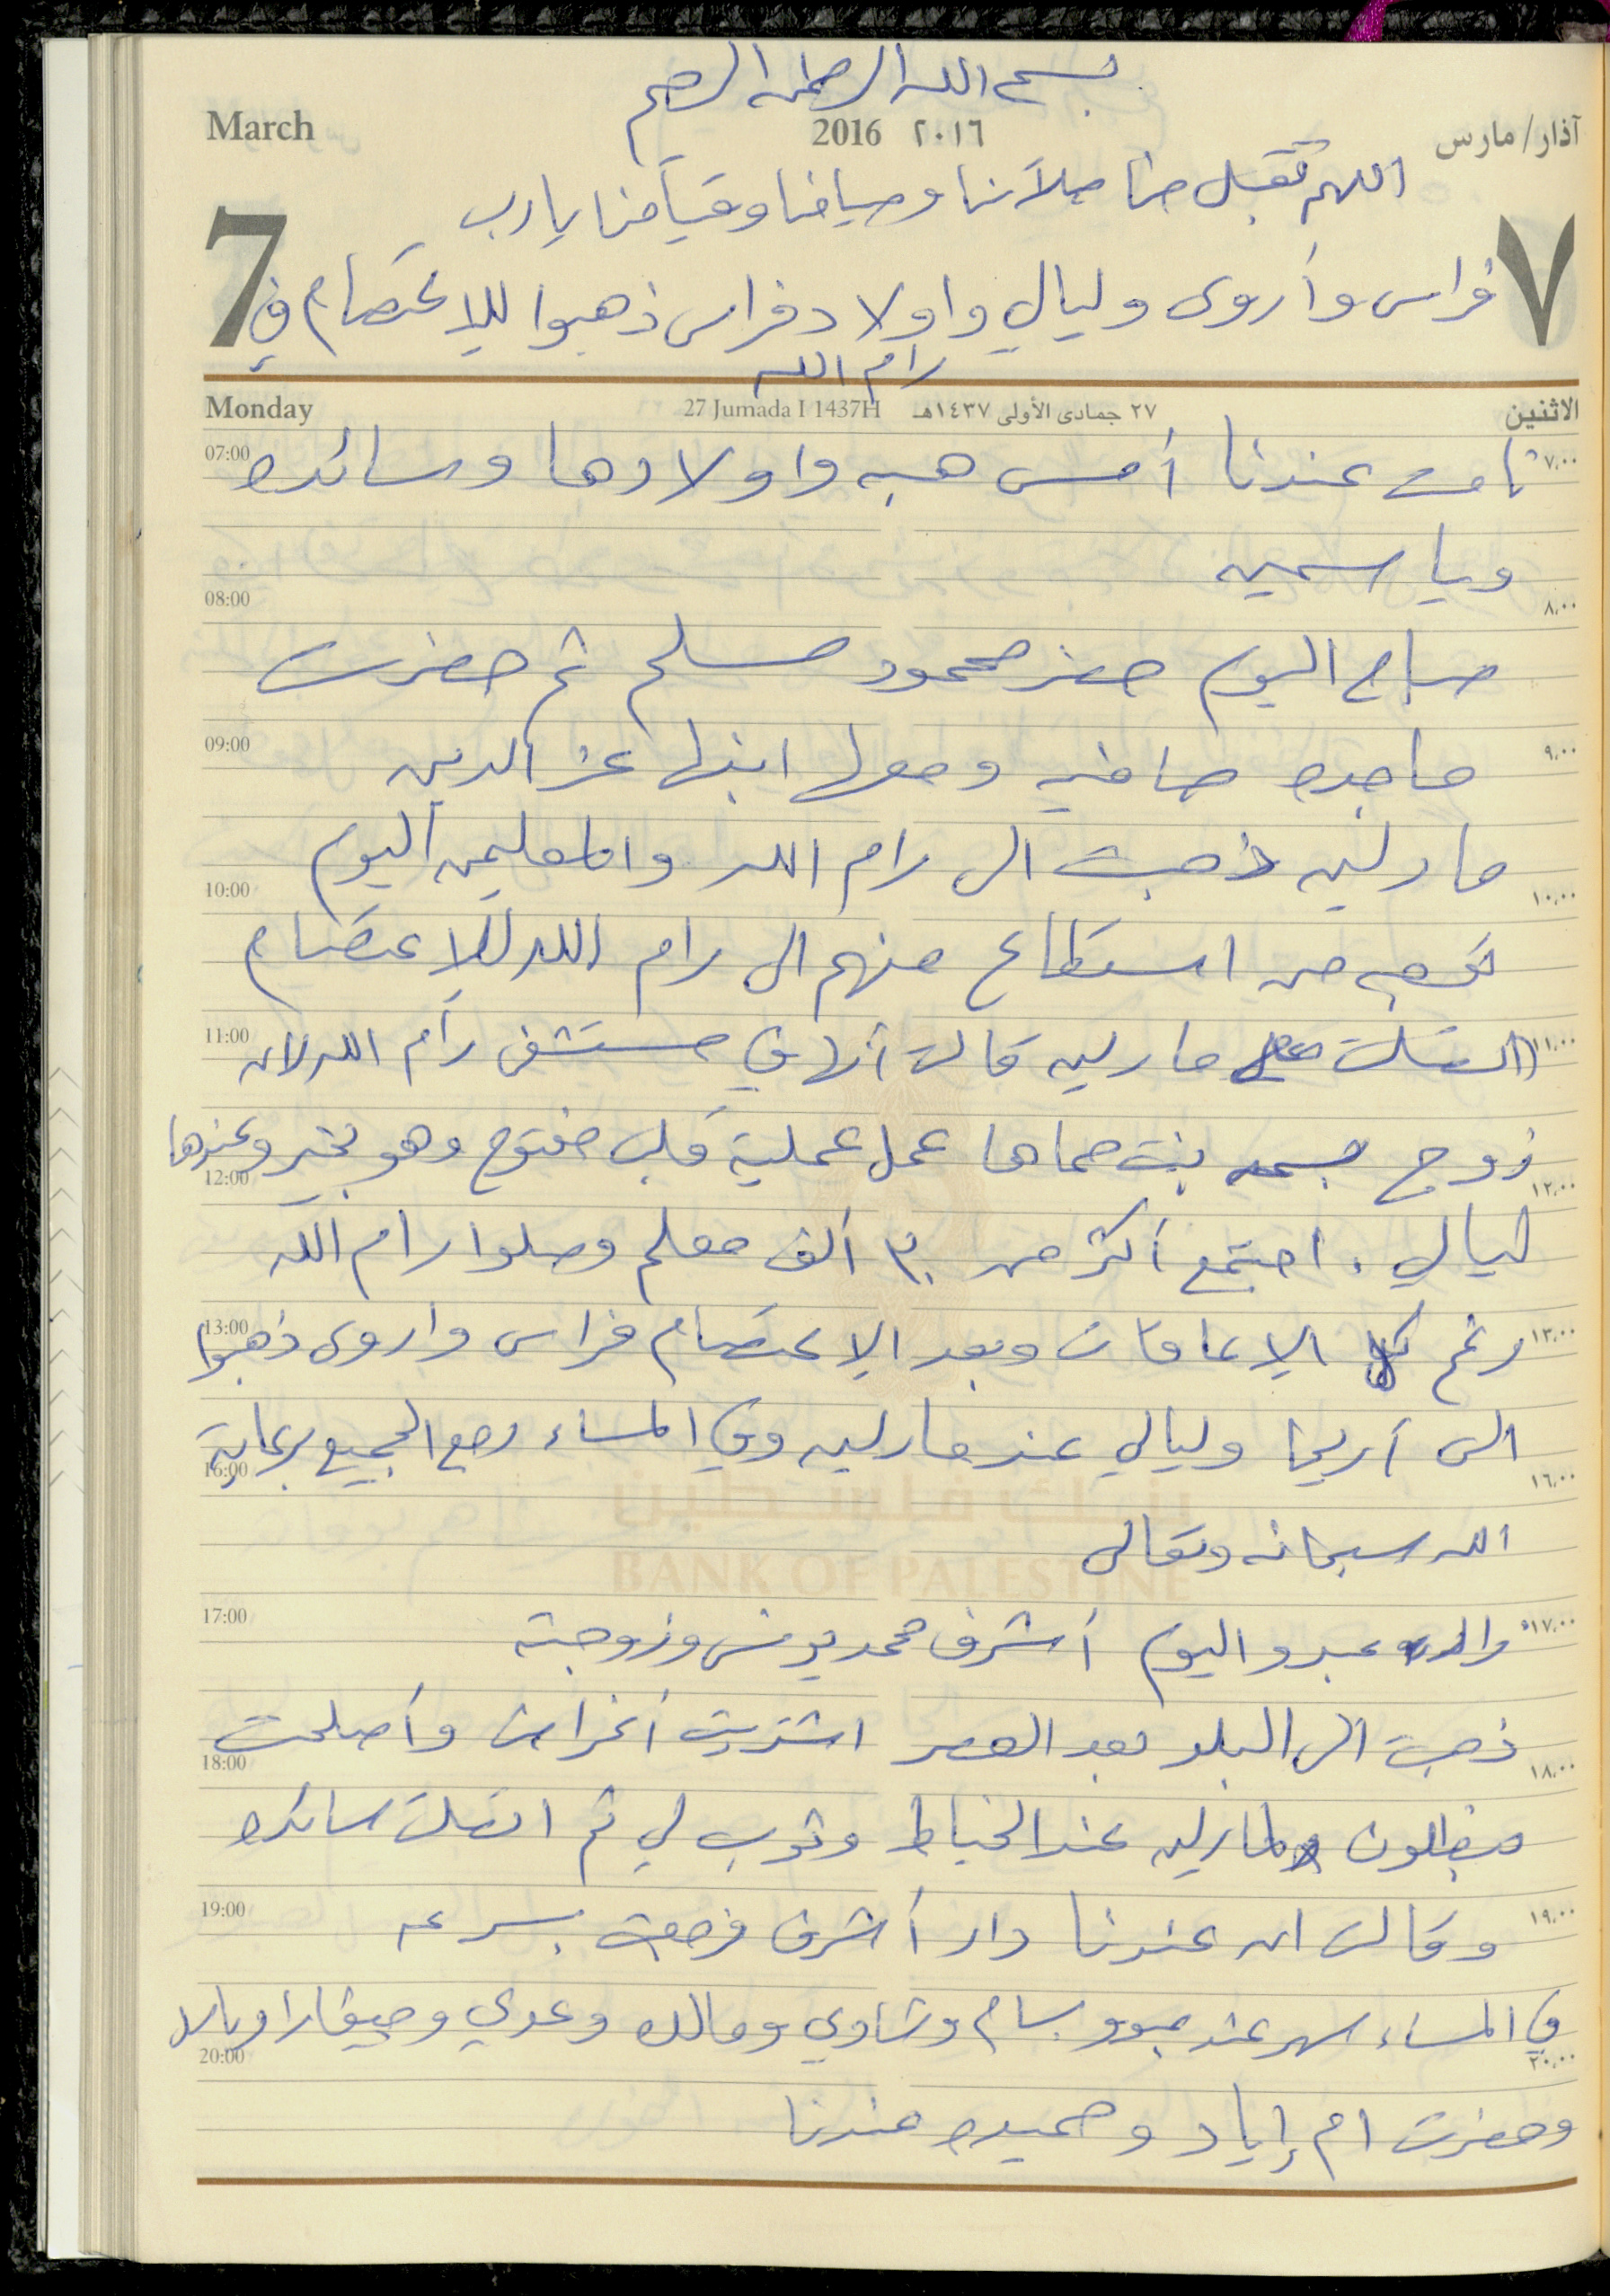 بسم الله الرحمن الرحيم
March 2016 ٢٠١٦ آذار/مارس
اللهم تقبل منا صلاتنا وصيامنا وقيامنا يارب
7 ٧
فراس وأروى وليالي واولاد فراس ذهبوا للإعتصام في
رام الله
Monday 27 Jumada I 1437H ٢٧ جمادى الأولى ١٤٣٧هـ الاثنين
07:00 ٧,٠٠
نامت عندنا أمس هبه واولادها وسائده
وياسمين
08:00 ٨,٠٠
صباح اليوم حضر محمود مسلم ثم حضرت
09:00 ٩,٠٠
ماجده صافيه ومعها ابنها عز الدين
مارلين ذهبت الى رام الله والمعلمين اليوم
10:00 ١٠,٠٠
توجه من استطاع منهم الى رام الله للاعتصام
11:00 ١١,٠٠
اتصلت مع مارلين قالت أنها في مستشفى رام الله لان
زوج بنت حماها عمل عملية قلب مفتوح وهو بخير وعندها
12:00 ١٢,٠٠
ليالي . اجتمع أكثر من ٣٠ ألف معلم وصلوا رام الله
13:00 ١٣,٠٠
رغم كل الإعاقات وبعد الإعتصام فراس واروى ذهبوا
الى أريحا وليالي عند مارلين وفي المساء رجع الجميع برعاية
16:00 ١٦,٠٠
بنك فلسطين
الله سبحانه وتعالى
BANK OF PALESTINE
17:00 ١٧,٠٠
والده عبدو اليوم أشرف محمد يونس وزوجته
ذهبت الى البلد بعد العصر اشتريت أغراض وأصلحت
18:00 ١٨,٠٠
بنطلون لمارلين عند الخياط وثوب لي ثم اتصلت سائده
19:00 ١٩,٠٠
وقالت ان عندنا دار أشرف فرجعت بسرعه
في المساء سهر عند عبدو بسام وشادي ومالك وعدي
20:00 ٢٠,٠٠
وحضرت ام إياد وحميده عندنا